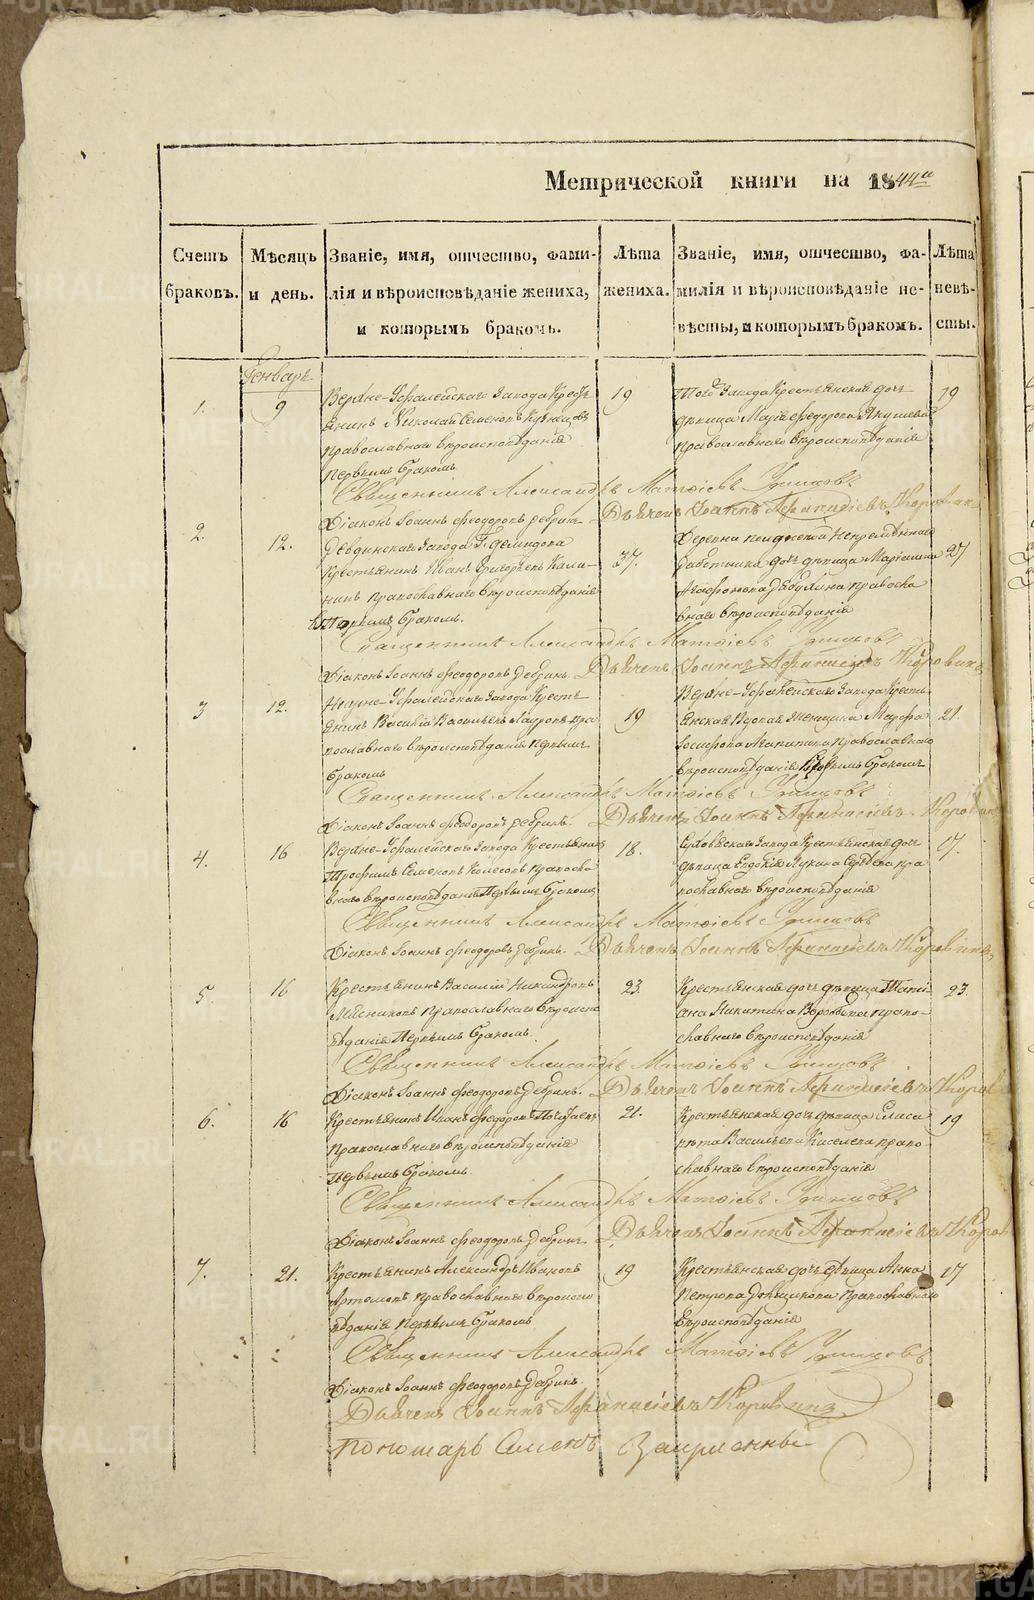 Метрической книги на 1844й
Счетъ браковъ.
Мѣсяцъ и день.
Званіе, имя, отчество, фами-
лія и вѣроисповѣданіе жениха,
и которымъ бракомъ.
Лѣта жениха.
Званіе, имя, отчество, фа-
милія и вѣроисповѣданіе не-
вѣсты, и которымъ бракомъ.
Лѣта невѣ-
сты.
Генварь
1.
9
Верхне-Уфалейскаго Завода Кресть
янинъ Николай Семеновъ Кузнецовъ
православнаго вѣроисповѣданія
первымъ бракомъ
19
Того Завода Крестьянская дочь
дѣвица Марія Федорова Якушева
православнаго вѣроисповѣданія
19
Священникъ Александръ Матѳіевъ
Діаконъ Іоаннъ Феодоровъ
Дьячекъ Іоаннъ Афанасіевъ Коровинъ
2.
12.
Завода Г. Демидова
Крестьянинъ Иванъ Григорьевъ Кали-
нинъ православнаго вѣроисповѣданія
Вторымъ бракомъ.
37.
Деревни
работника дочь дѣвица Маріамна
Агафонова православ
наго вѣроисповѣданія
27
Священникъ Александръ Матѳіевъ
Діаконъ Іоаннъ Феодоровъ
Дьячекъ Іоаннъ Афанасіевъ Коровинъ
3
12.
Нижне-Уфалейскаго Завода Кресть
янинъ Василій Васильевъ Лавровъ пра
вославнаго вѣроисповѣданія первымъ
бракомъ
19
Верхне-Уфалейскаго Завода Кресть
янская Вдовая Женщина Марфа
Іосифова православнаго
вѣроисповѣданія Вторымъ бракомъ
21.
Священникъ Александръ Матѳіевъ
Діаконъ Іоаннъ Феодоровъ
Дьячекъ Іоаннъ Афанасіевъ Коровинъ
4.
16
Верхне-Уфалейскаго Завода Крестьянинъ
Трофимъ Семеновъ православ
наго вѣроисповѣданія Первымъ бракомъ
18.
Завода Крестьянская дочь
дѣвица Евдокія Лукина пра
вославнаго вѣроисповѣданія
17.
Священникъ Александръ Матѳіевъ
Діаконъ Іоаннъ Феодоровъ
Дьячекъ Іоаннъ Афанасіевъ Коровинъ
5
16
Крестьянинъ Василій Никандровъ
Мясниковъ православнаго вѣроиспо
вѣданія Первымъ бракомъ
23.
Крестьянская дочь дѣвица Тать
яна Никитина Воробьева право-
славнаго вѣроисповѣданія
23.
Священникъ Александръ Матѳіевъ
Діаконъ Іоаннъ Феодоровъ
Дьячекъ Іоаннъ Афанасіевъ Коровинъ
6.
16
Крестьянинъ Иванъ Федоровъ
Православнаго вѣроисповѣданія
Первымъ бракомъ.
21.
Крестьянская дочь дѣвица Елиса
вета Васильева Киселева право-
славнаго вѣроисповѣданія
19
Священникъ Александръ Матѳіевъ
Діаконъ Іоаннъ Феодоровъ
Дьячекъ Іоаннъ Афанасіевъ Коровинъ
7.
21.
Крестьянинъ Александръ Ивановъ
Артемовъ православнаго вѣроиспо
вѣданія первымъ бракомъ
19
Крестьянская дочь дѣвица Анна
Петрова православнаго
вѣроисповѣданія
17
Священникъ Александръ Матѳіевъ
Діаконъ Іоаннъ Феодоровъ
Дьячекъ Іоаннъ Афанасіевъ Коровинъ
пономарь Семенъ
METRIKI.GASO-URAL.RU